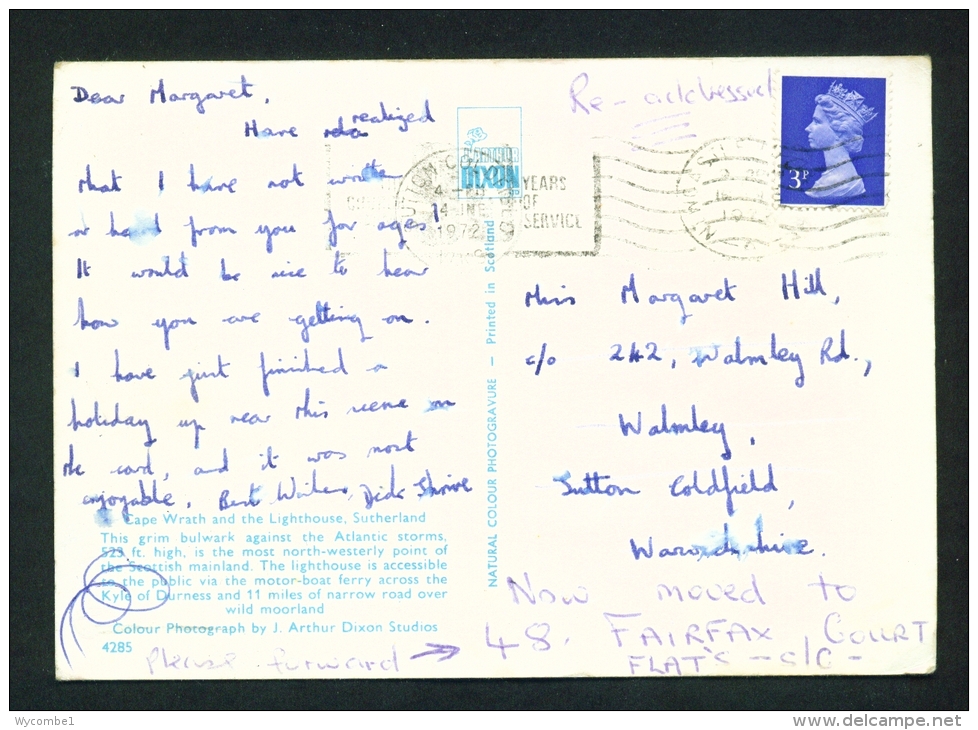 Dear Margaret,
Have realized
that I have not written
or heard from you for ages!
It would be nice to hear
how you are getting on.
I have just finished a
holiday up near this scene on
the card, and it was most
enjoyable. Best Wishes, Dick Shrive
Cape Wrath and the Lighthouse, Sutherland
This grim bulwark against the Atlantic storms,
523 ft. high, is the most north-westerly point of
the Scottish mainland. The lighthouse is accessible
to the public via the motor-boat ferry across the
Kyle of Durness and 11 miles of narrow road over
wild moorland
Colour Photograph by J. Arthur Dixon Studios
4285
Please forward
NATURAL COLOUR PHOTOGRAVURE — Printed in Scotland
J. ARTHUR
DIXON
YEARS
OF
SERVICE
1972
Re-addressed
3P
Miss Margaret Hill,
c/o 242, Walmley Rd.,
Walmley,
Sutton Coldfield,
Warwickshire.
Now moved to
48. FAIRFAX COURT
FLAT'S - S/C -
Wycombe1
www.delcampe.net